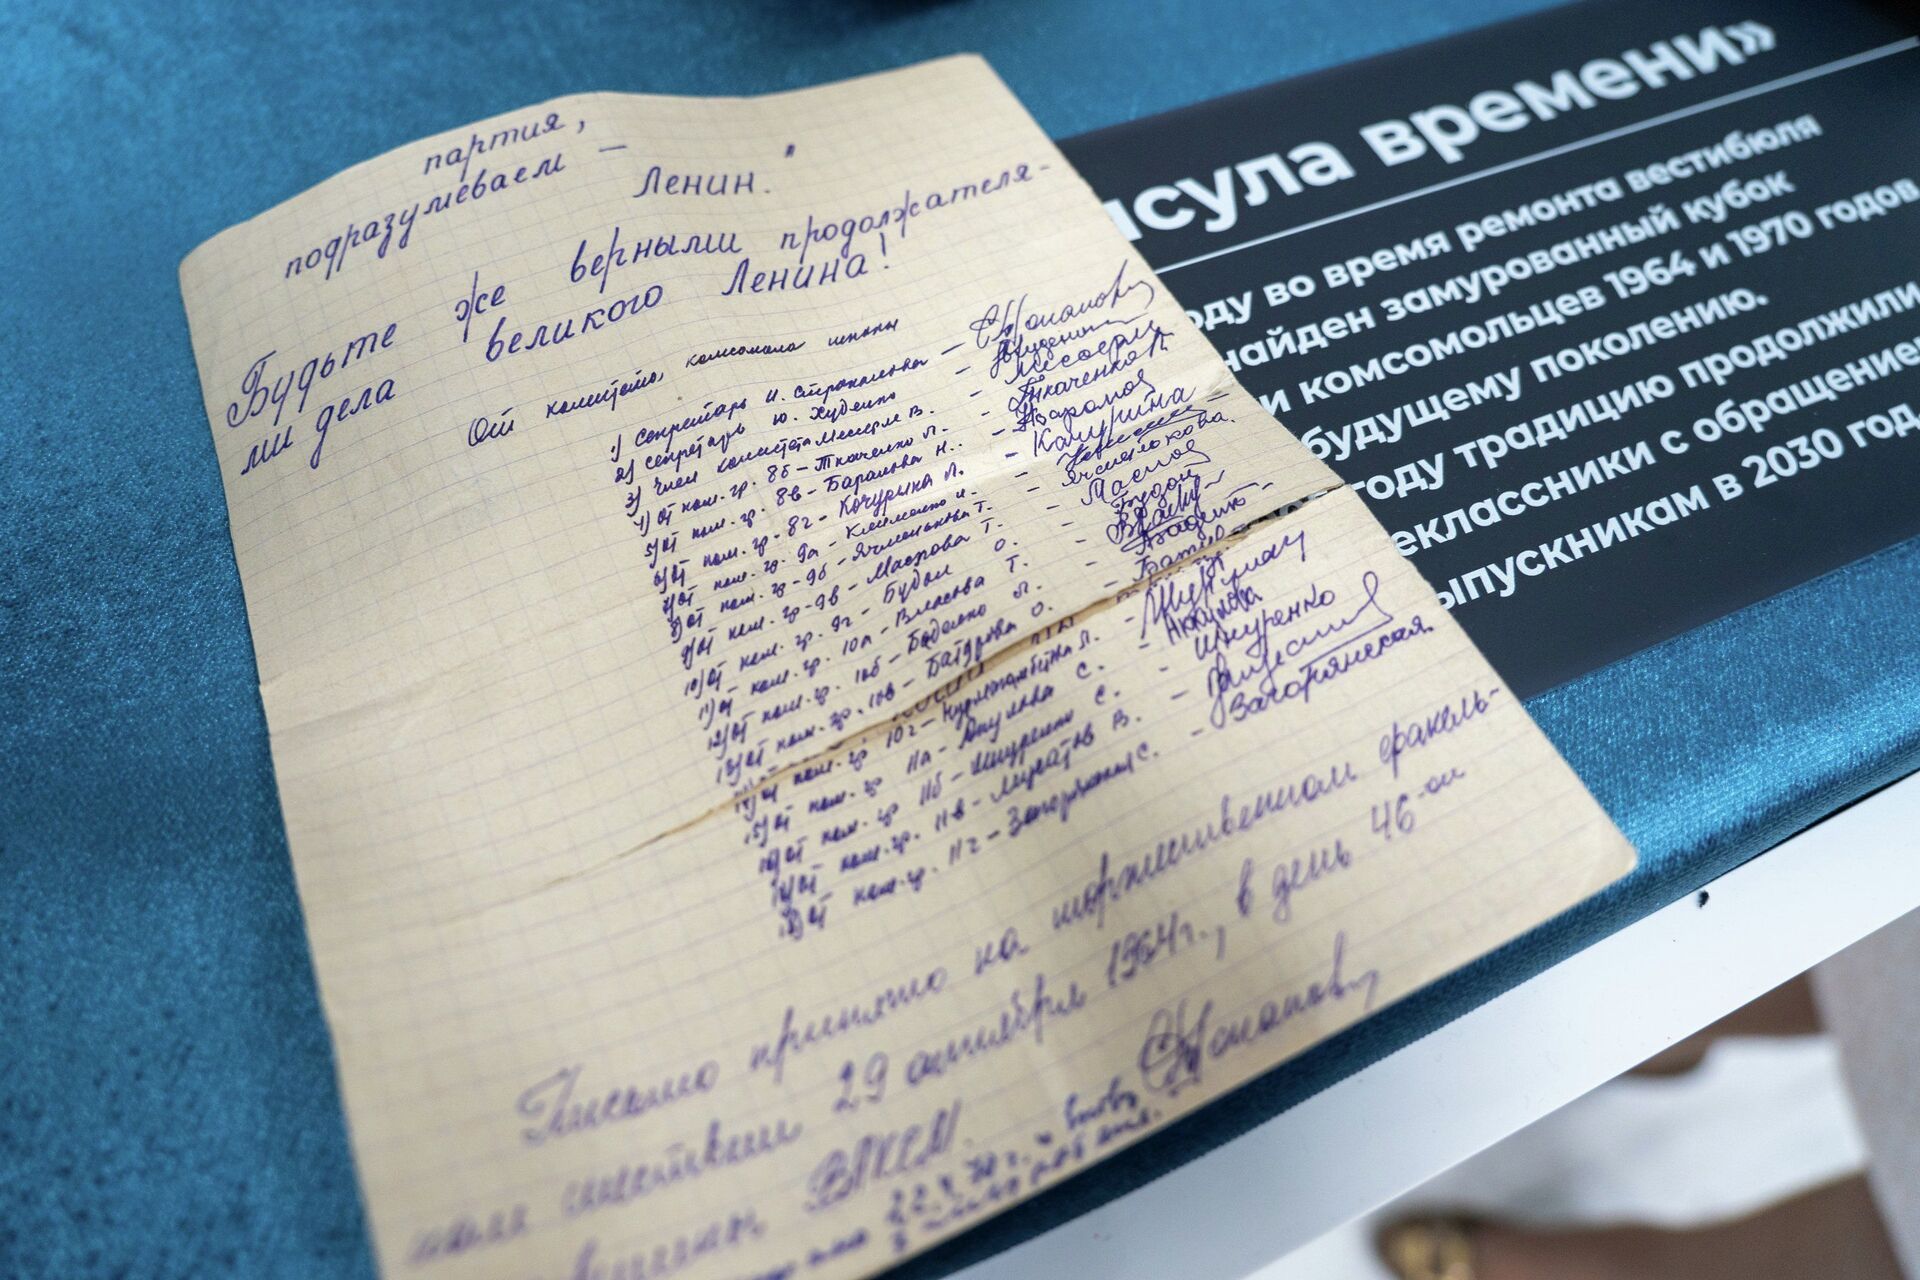 партия,
подразумеваем —
Ленин."
Будьте же верными продолжателя-
ми дела великого Ленина!
От комитета комсомола школы
1) Секретарь
2) Секретарь Ю. Худенко
3) Член комитета Мессерле В.
4) От ком. гр. 8б – Ткаченко Л. – Ткаченко
5) От ком. гр. 8в – Баранова Н.
6) От ком. гр. 8г – Кочурина Л. – Кочурина
7) От ком. гр. 9а – Клименко И.
8) От ком. гр. 9б – Ячменькова Т. – Ячменькова.
9) От ком. гр. 9в – Т.
10) От ком. гр. 9г – Будон О.
11) От ком. гр. 10а – Власова Т.
12) От ком. гр. 10б – Баденко Л.
13) От ком. гр. 10в – Батурова О.
14) От ком. гр. 10г – Л.
15) От ком. гр. 11а – Акулова С. – Акулова
16) От ком. гр. 11б – Шкуренко С. – Шкуренко
17) От ком. гр. 11в – Муратов В.
18) От ком. гр. 11г – Загорянская С. – Загорянская.
Письмо принято на торжественном факель-
ном шествии 29 октября 1964 г., в день 46-ой
ВЛКСМ.
22.X.70 г. вновь
сула времени»
оду во время ремонта вестибюля
найден замурованный кубок
и комсомольцев 1964 и 1970 годов
будущему поколению.
году традицию продолжили
еклассники с обращением
ыпускникам в 2030 год